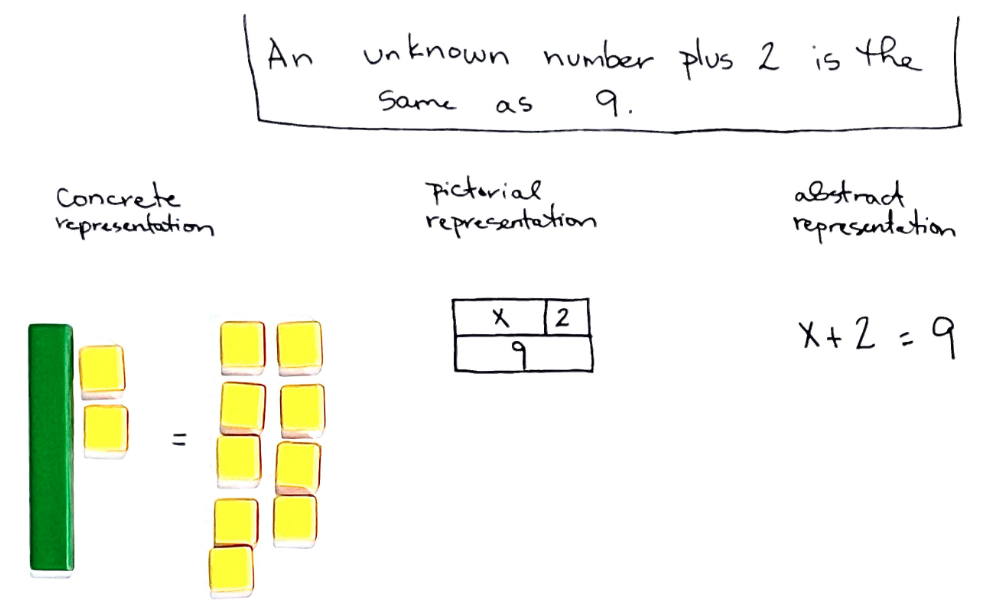 An unknown number plus 2 is the
same as 9.
Concrete
representation
pictorial
representation
abstract
representation
=
x 2
9
x + 2 = 9